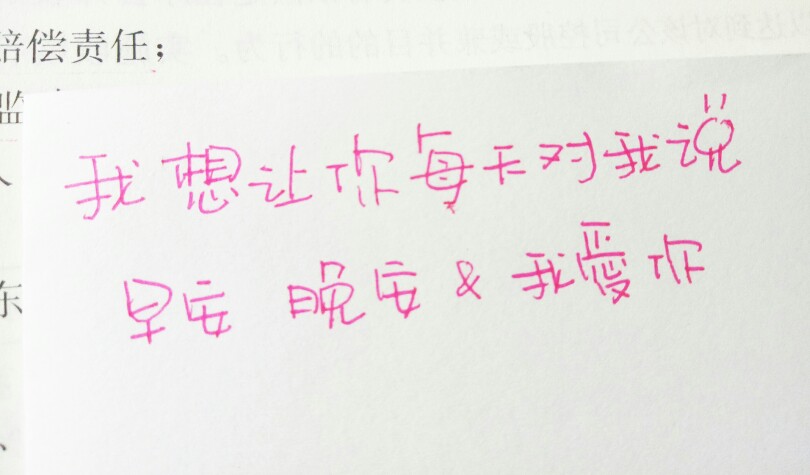 赔偿责任；
监
东
我想让你每天对我说
早安 晚安 & 我爱你